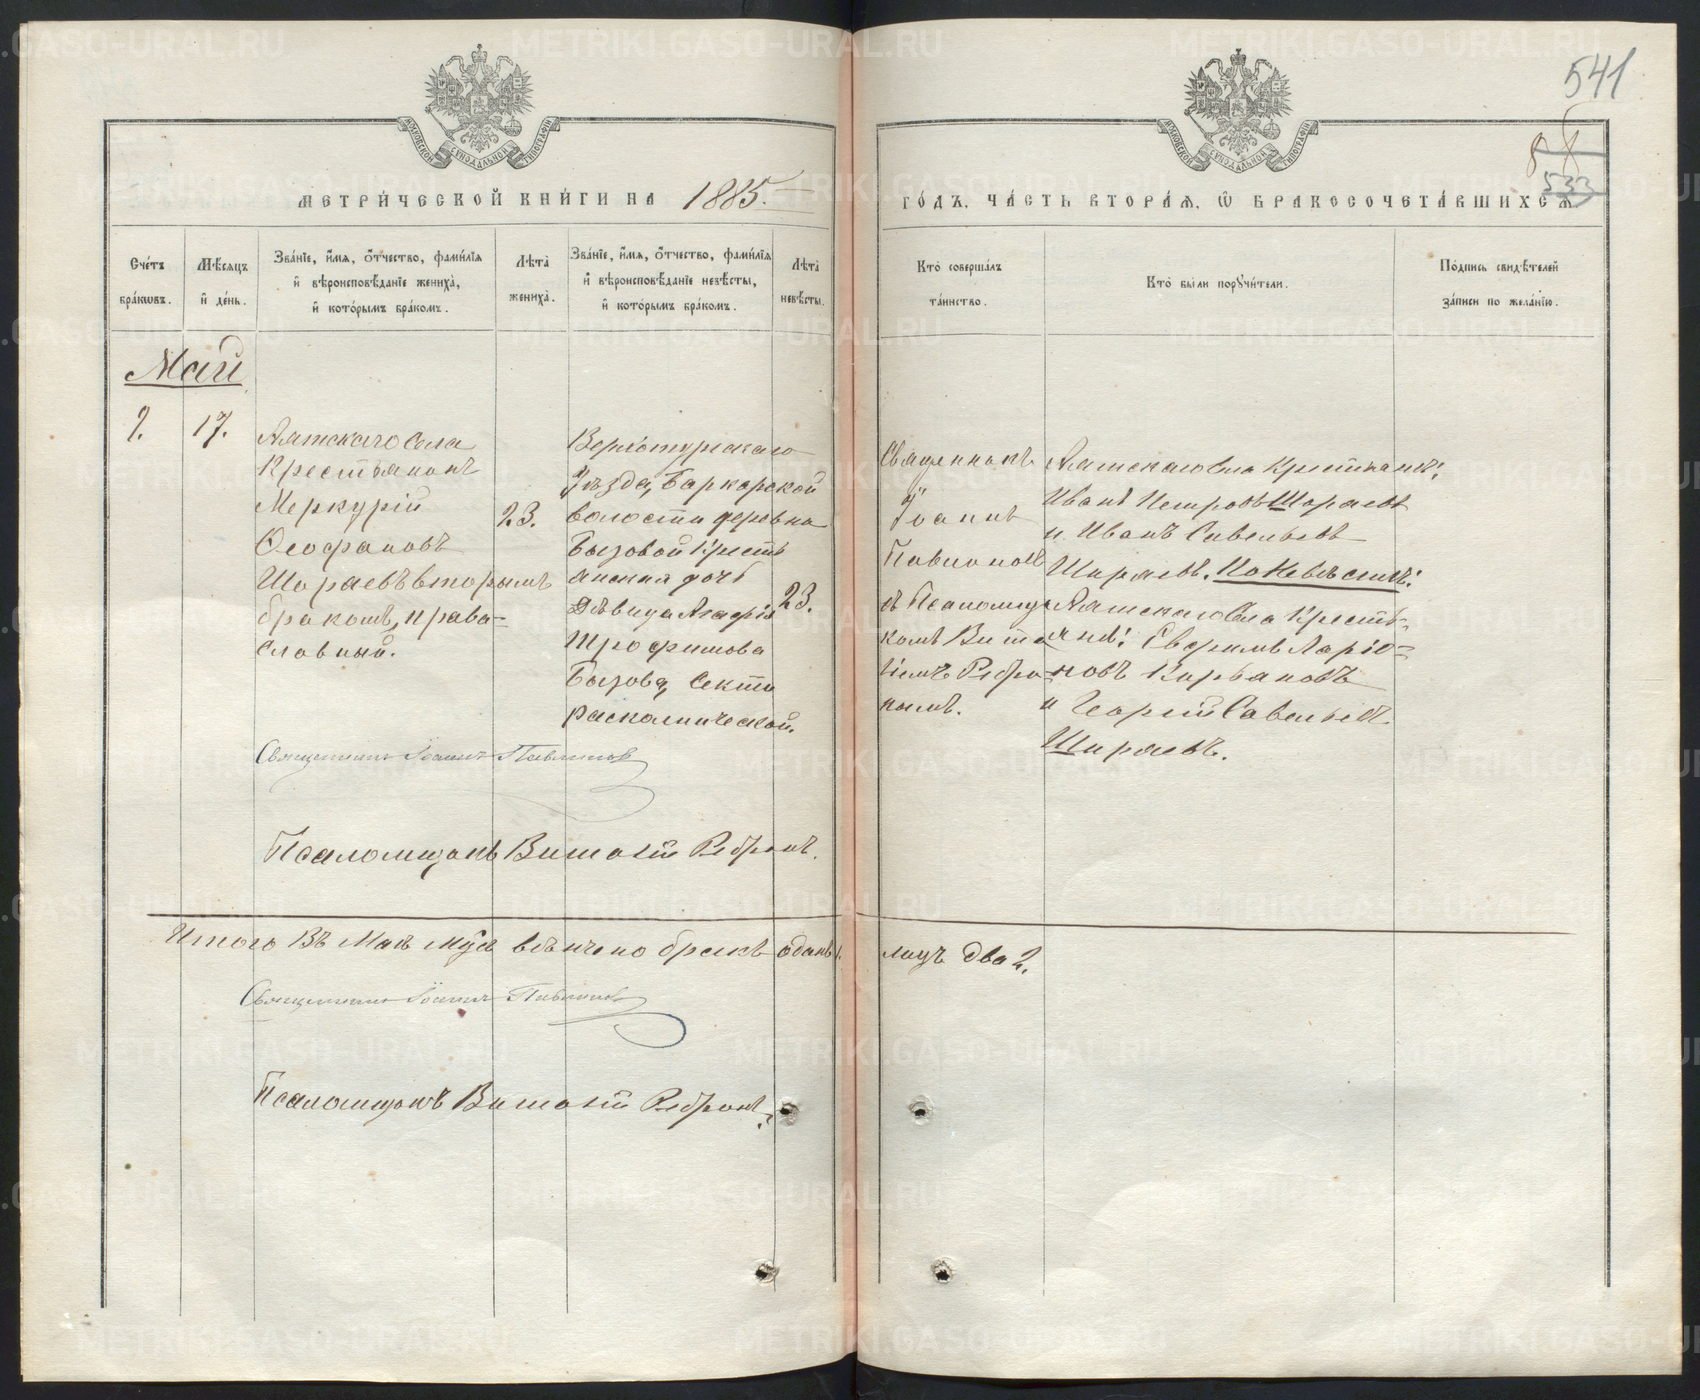 541
88
533
МОСКОВСКОЙ СѴНОДАЛЬНОЙ ТИПОГРАФІИ
МОСКОВСКОЙ СѴНОДАЛЬНОЙ ТИПОГРАФІИ
МЕТРИ́ЧЕСКОЙ КНИ́ГИ НА 1885. ГО́ДЪ, ЧА́СТЬ ВТОРА́Я, Ѡ БРАКОСОЧЕТА́ВШИХСЯ
Сче́тъ бра́кѡвъ.
Мѣ́сяцъ и҆ де́нь.
Зва́нїе, и҆́мя, ѻ҆́тчество, фами́лїя и҆ вѣроисповѣ́данїе жениха̀, и҆ кото́рымъ бра́комъ.
Лѣта̀ жениха̀.
Зва́нїе, и҆́мя, ѻ҆́тчество, фами́лїя и҆ вѣроисповѣ́данїе невѣ́сты, и҆ кото́рымъ бра́комъ.
Лѣта̀ невѣ́сты.
Кто̀ соверша́лъ та́инство.
Кто̀ бы́ли порꙋчи́тели.
По́дпись свидѣ́телей за́писи по жела́нїю.
Май
1.
17.
Аятскаго Села
Крестьянинъ
Меркурій
Ѳеофановъ
Ширяевъ вторымъ
бракомъ, право-
славный.
23.
Верхотурскаго
Уѣзда,
волости деревни
Бызовой Кресть
янская дочь
Дѣвица Агафія
Трофимова
Бызова, Секты
раскольнической.
23.
Священникъ
Іоаннъ
Павлиновъ
съ Псаломщи
комъ Вита
ліемъ Ребри
нымъ.
Аятскаго Села Крестьяне:
Иванъ Петровъ Ширяевъ
и Иванъ Савельевъ
Ширяевъ. По Невѣстѣ:
Аятскаго Села Кресть-
яне: Евфимъ Ларіо-
новъ Кирьановъ
и Георгій Савельевъ
Ширяевъ.
Священникъ Іоаннъ Павлиновъ
Псаломщикъ Виталій Ребринъ.
Итого въ Маѣ мцѣ вѣнчено бракъ одинъ 1. лицъ два 2.
Священникъ Іоаннъ Павлиновъ
Псаломщикъ Виталій Ребринъ.
METRIKI.GASO-URAL.RU